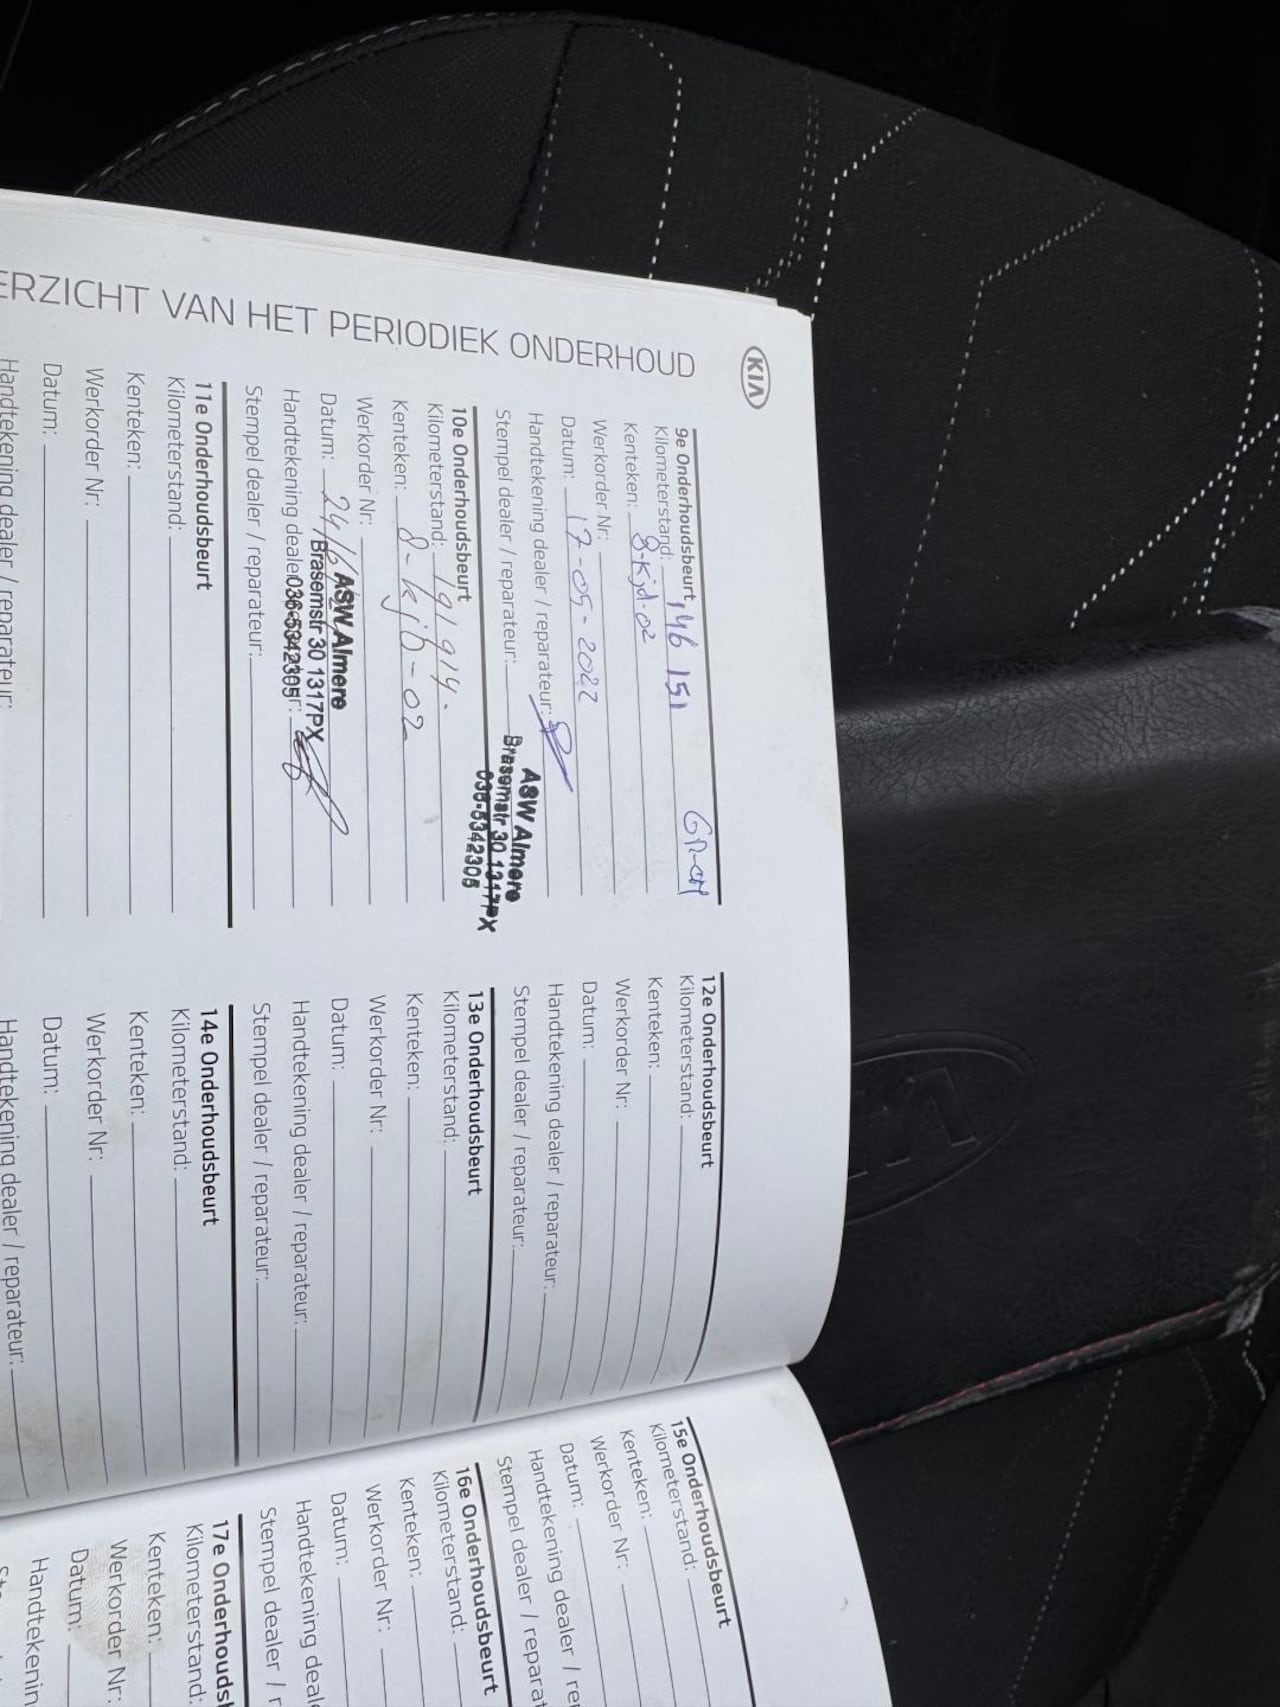 KIA
ERZICHT VAN HET PERIODIEK ONDERHOUD
9e Onderhoudsbeurt
Kilometerstand: 146 151 GR-CH
Kenteken: 8-Kjd-02
Werkorder Nr:
Datum: 17-05-2022
Handtekening dealer / reparateur:
Stempel dealer / reparateur:
ASW Almere
Brasemstr 30 1317PX
036-5342305
10e Onderhoudsbeurt
Kilometerstand: 191914.
Kenteken: 8-kjb-02
Werkorder Nr:
Datum: 24/6/
Handtekening dealer
Stempel dealer / reparateur:
ASW Almere
Brasemstr 30 1317PX
036-5342305
11e Onderhoudsbeurt
Kilometerstand:
Kenteken:
Werkorder Nr:
Datum:
Handtekening dealer / reparateur:
12e Onderhoudsbeurt
Kilometerstand:
Kenteken:
Werkorder Nr:
Datum:
Handtekening dealer / reparateur:
Stempel dealer / reparateur:
13e Onderhoudsbeurt
Kilometerstand:
Kenteken:
Werkorder Nr:
Datum:
Handtekening dealer / reparateur:
Stempel dealer / reparateur:
14e Onderhoudsbeurt
Kilometerstand:
Kenteken:
Werkorder Nr:
Datum:
Handtekening dealer / reparateur:
15e Onderhoudsbeurt
Kilometerstand:
Kenteken:
Werkorder Nr:
Datum:
Handtekening dealer / re
Stempel dealer / reparat
16e Onderhoudsbeurt
Kilometerstand:
Kenteken:
Werkorder Nr:
Datum:
Handtekening deale
Stempel dealer / r
17e Onderhouds
Kilometerstand:
Kenteken:
Werkorder Nr:
Datum:
Handtekenin
KIA